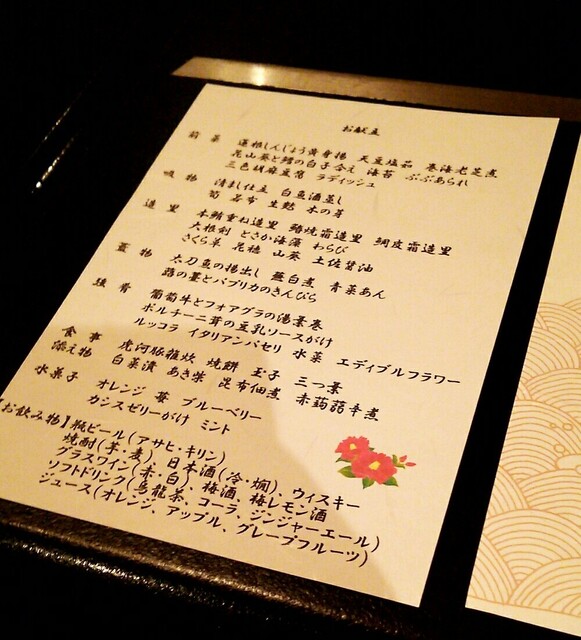 お献立
前菜 蓮根しんじょう黄身揚 天豆塩茹 巻海老芝煮
花山葵と鱈の白子合え 海苔 ぶぶあられ
三色胡麻豆腐 ラディッシュ
吸物 清まし仕立 白魚酒蒸し
筍 若布 生麩 木の芽
造里 本鮪重ね造里 鰆焼霜造里 鯛皮霜造里
大根剣 とさか海藻 わらび
さくら草 花穂 山葵 土佐醤油
蓋物 太刀魚の揚出し 蕪白煮 青菜あん
蕗の薹とパプリカのきんぴら
強肴 葡萄牛とフォアグラの湯葉巻
ポルチーニ茸の豆乳ソースがけ
ルッコラ イタリアンパセリ 水菜 エディブルフラワー
食事 虎河豚雑炊 焼餅 玉子 三つ葉
添え物 白菜漬 あき柴 昆布佃煮 赤蒟蒻辛煮
水菓子 オレンジ 苺 ブルーベリー
カシスゼリーがけ ミント
【お飲み物】瓶ビール(アサヒ・キリン)
焼酎(芋・麦)、日本酒(冷・燗)、ウィスキー
グラスワイン(赤・白)、梅酒、梅レモン酒
ソフトドリンク(烏龍茶、コーラ、ジンジャーエール)
ジュース(オレンジ、アップル、グレープフルーツ)